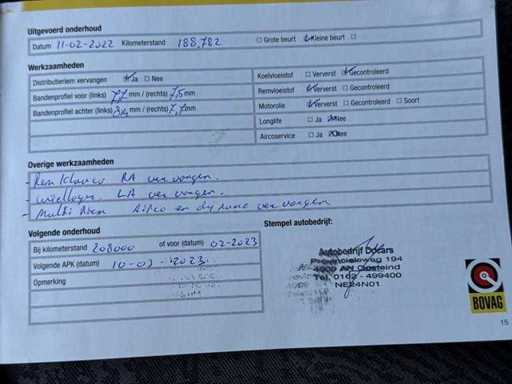 Uitgevoerd onderhoud
Datum 11-02-2022 Kilometerstand 188,782 Grote beurt Kleine beurt
Werkzaamheden
Distributieriem vervangen Ja Nee
Bandenprofiel voor (links) 7,7 mm / (rechts) 7,5 mm
Bandenprofiel achter (links) mm / (rechts) 7,7 mm
Koelvloeistof Ververst Gecontroleerd
Remvloeistof Ververst Gecontroleerd
Motorolie Ververst Gecontroleerd Soort
Longlife Ja Nee
Aircoservice Ja Nee
Overige werkzaamheden
- Remklauw RA vervangen.
- wiellager LA vervangen.
- Multi Riem Airco en dynamo vervangen
Volgende onderhoud
Bij kilometerstand 208000 of voor (datum) 02-2023
Volgende APK (datum) 10-02-2023.
Opmerking
Stempel autobedrijf:
Autobedrijf Docars
Provincialeweg 194
4909 AN Oosteind
Tel. 0162 - 499400
NE24N01
BOVAG
15